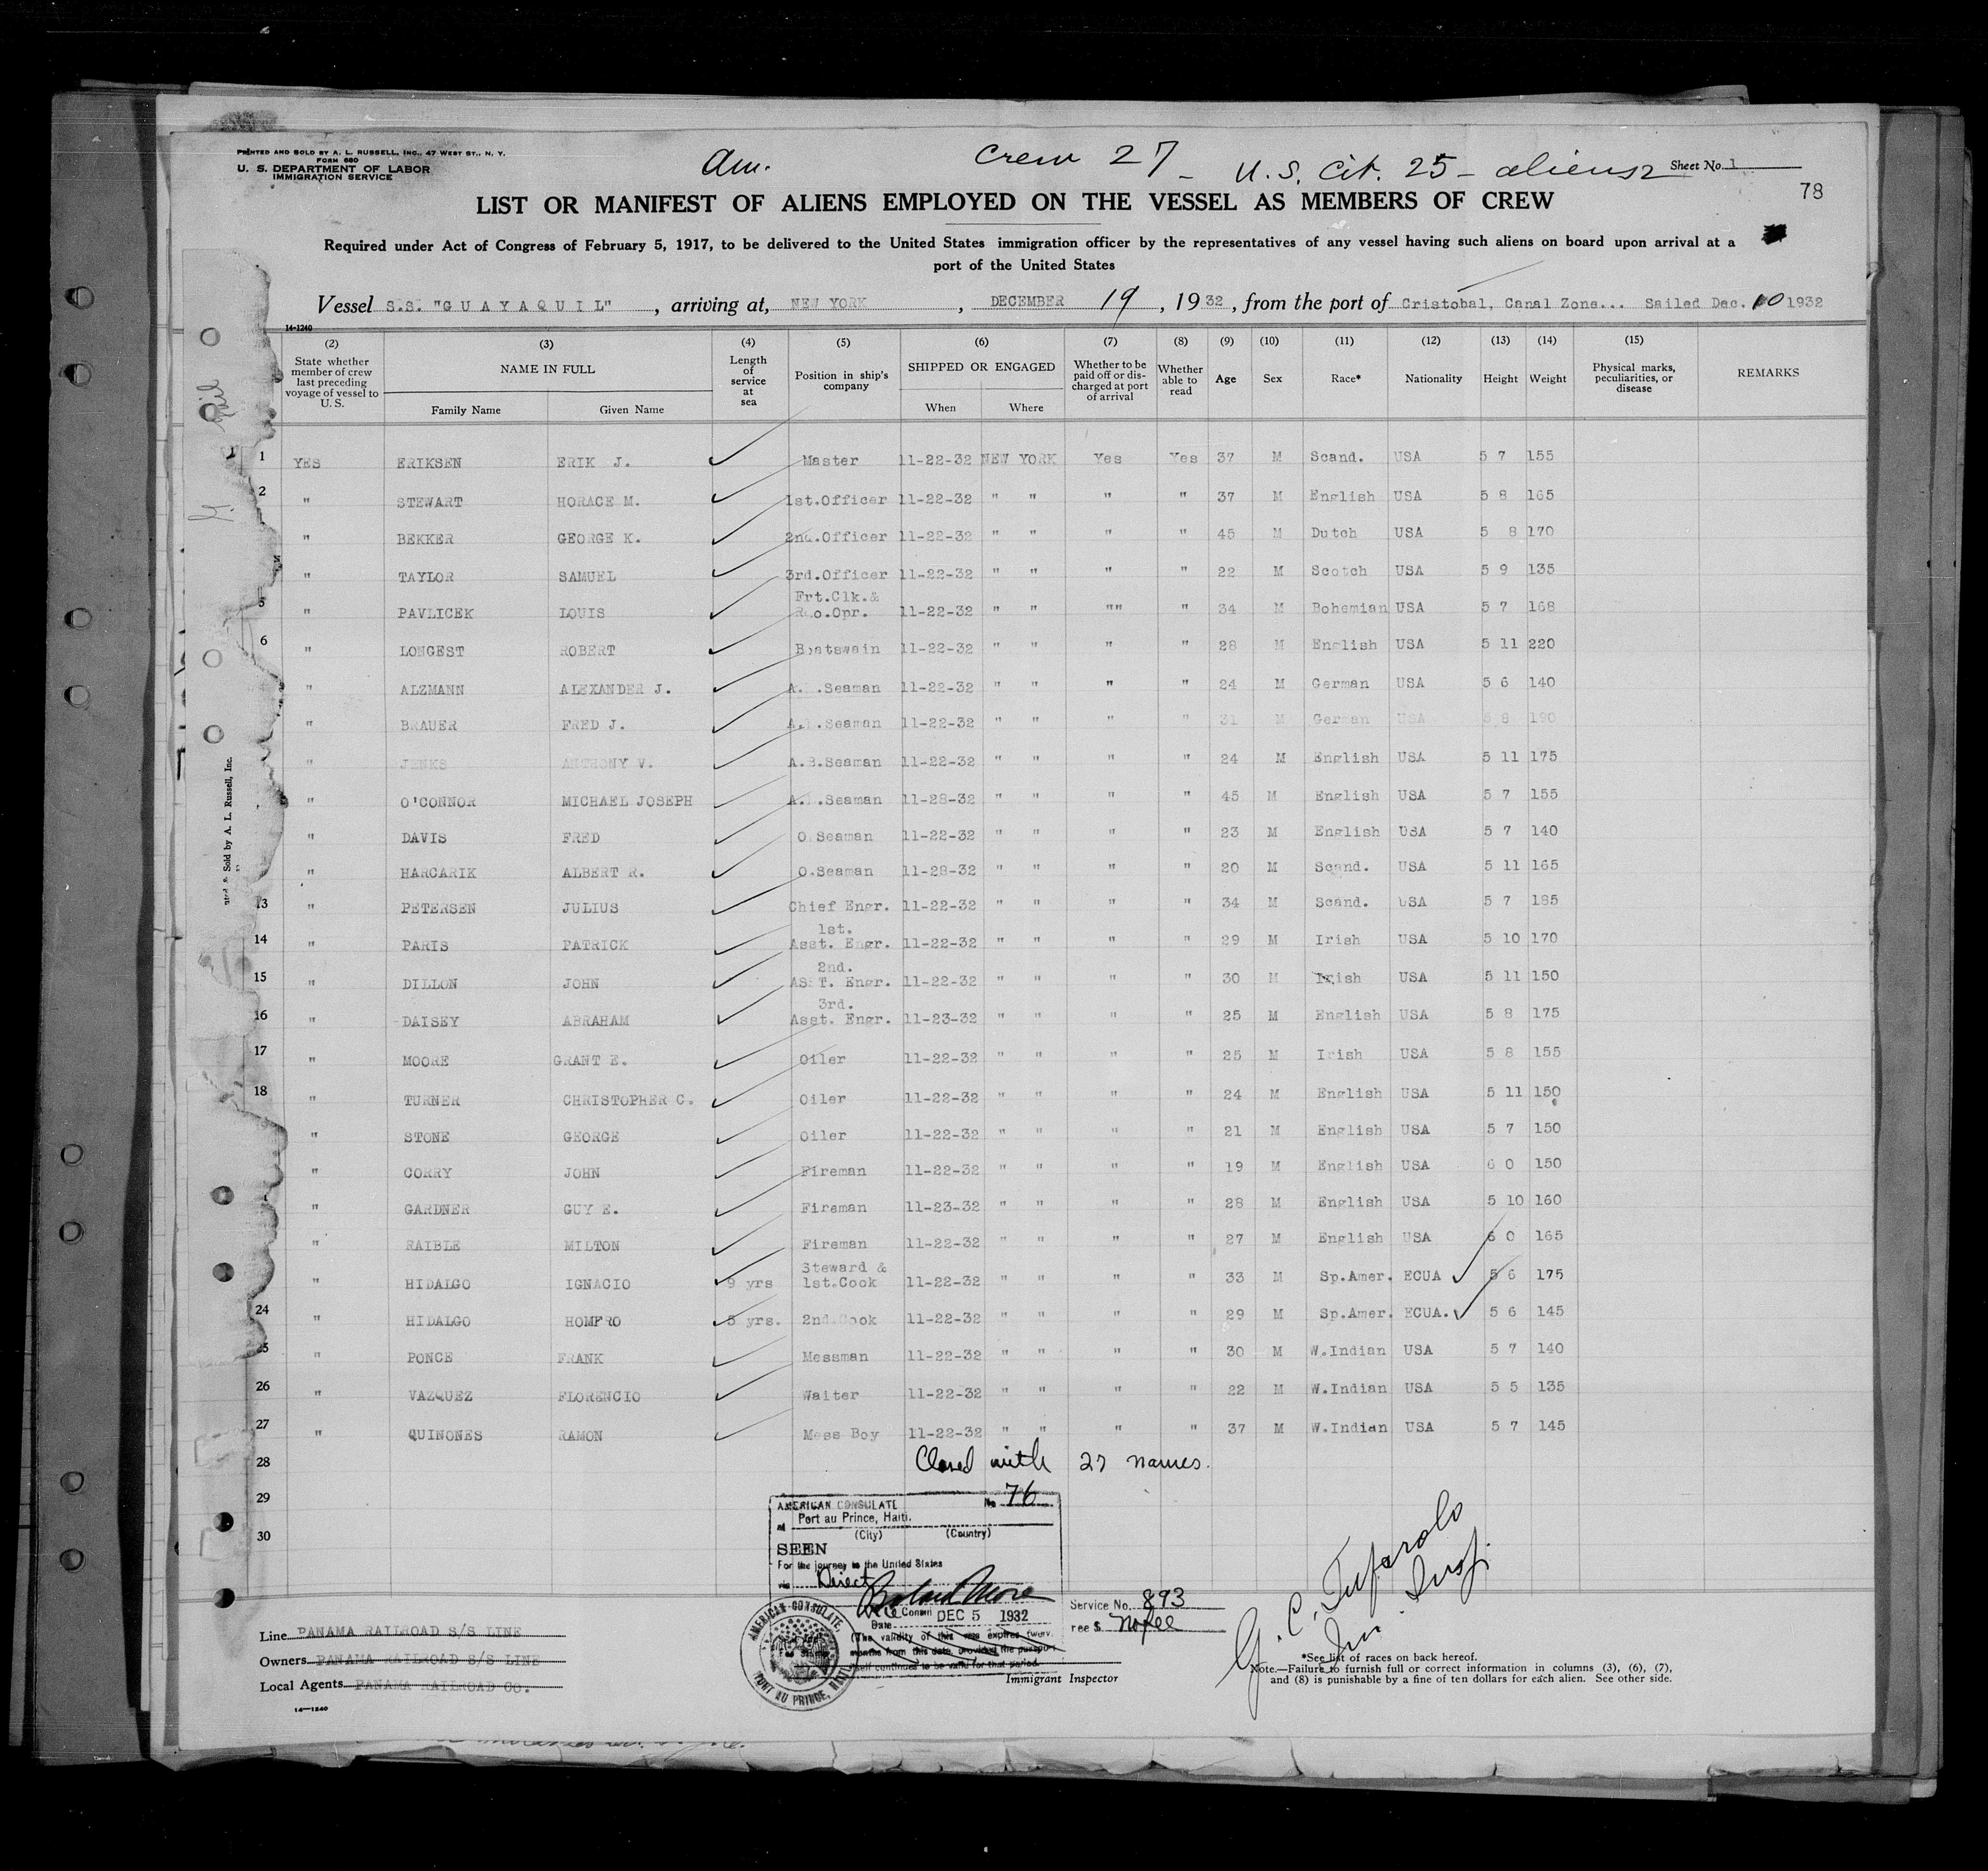 PRINTED AND SOLD BY A. L. RUSSELL, INC., 47 WEST ST., N. Y.
FORM 680
U. S. DEPARTMENT OF LABOR
IMMIGRATION SERVICE
Am. Crew 27 - U.S. Cit. 25 - aliens 2
Sheet No. 1
78
LIST OR MANIFEST OF ALIENS EMPLOYED ON THE VESSEL AS MEMBERS OF CREW
Required under Act of Congress of February 5, 1917, to be delivered to the United States immigration officer by the representatives of any vessel having such aliens on board upon arrival at a
port of the United States
Vessel S.S. "G U A Y A Q U I L", arriving at, NEW YORK, DECEMBER 19, 1932, from the port of Cristobal, Canal Zone... Sailed Dec. 10 1932
14-1240
(2) State whether member of crew last preceding voyage of vessel to U. S.
(3) NAME IN FULL Family Name Given Name
(4) Length of service at sea
(5) Position in ship's company
(6) SHIPPED OR ENGAGED When Where
(7) Whether to be paid off or discharged at port of arrival
(8) Whether able to read
(9) Age
(10) Sex
(11) Race*
(12) Nationality
(13) Height
(14) Weight
(15) Physical marks, peculiarities, or disease
REMARKS
1 YES ERIKSEN ERIK J. Master 11-22-32 NEW YORK Yes Yes 37 M Scand. USA 5 7 155
2 " STEWART HORACE M. 1st.Officer 11-22-32 " " " " 37 M English USA 5 8 165
" BEKKER GEORGE K. 2nd.Officer 11-22-32 " " " " 45 M Dutch USA 5 8 170
" TAYLOR SAMUEL 3rd.Officer 11-22-32 " " " " 22 M Scotch USA 5 9 135
5 " PAVLICEK LOUIS Frt.Clk.& Rdo.Opr. 11-22-32 " " "" " 34 M Bohemian USA 5 7 168
6 " LONGEST ROBERT Boatswain 11-22-32 " " " " 28 M English USA 5 11 220
" ALZMANN ALEXANDER J. A.B.Seaman 11-22-32 " " " " 24 M German USA 5 6 140
" BRAUER FRED J. A.B.Seaman 11-22-32 " " " " 31 M German USA 5 8 190
" JENKS ANTHONY V. A.B.Seaman 11-22-32 " " " " 24 M English USA 5 11 175
" O'CONNOR MICHAEL JOSEPH A.B.Seaman 11-28-32 " " " " 45 M English USA 5 7 155
" DAVIS FRED O.Seaman 11-22-32 " " " " 23 M English USA 5 7 140
" HARCARIK ALBERT R. O.Seaman 11-28-32 " " " " 20 M Scand. USA 5 11 165
13 " PETERSEN JULIUS Chief Engr. 11-22-32 " " " " 34 M Scand. USA 5 7 185
14 " PARIS PATRICK 1st. Asst. Engr. 11-22-32 " " " " 29 M Irish USA 5 10 170
15 " DILLON JOHN 2nd. ASST. Engr. 11-22-32 " " " " 30 M Irish USA 5 11 150
16 " DAISEY ABRAHAM 3rd. Asst. Engr. 11-23-32 " " " " 25 M English USA 5 8 175
17 " MOORE GRANT E. Oiler 11-22-32 " " " " 25 M Irish USA 5 8 155
18 " TURNER CHRISTOPHER C. Oiler 11-22-32 " " " " 24 M English USA 5 11 150
" STONE GEORGE Oiler 11-22-32 " " " " 21 M English USA 5 7 150
" CORRY JOHN Fireman 11-22-32 " " " " 19 M English USA 6 0 150
" GARDNER GUY E. Fireman 11-23-32 " " " " 28 M English USA 5 10 160
" RAIBLE MILTON Fireman 11-22-32 " " " " 27 M English USA 6 0 165
" HIDALGO IGNACIO 9 yrs Steward & 1st.Cook 11-22-32 " " " " 33 M Sp.Amer. ECUA 5 6 175
24 " HIDALGO HOMERO 5 yrs. 2nd.Cook 11-22-32 " " " " 29 M Sp.Amer. ECUA. 5 6 145
25 " PONCE FRANK Messman 11-22-32 " " " " 30 M W.Indian USA 5 7 140
26 " VAZQUEZ FLORENCIO Waiter 11-22-32 " " " " 22 M W.Indian USA 5 5 135
27 " QUINONES RAMON Mess Boy 11-22-32 " " " " 37 M W.Indian USA 5 7 145
28 Closed with 27 names.
29
30
AMERICAN CONSULATE No 76
at Port au Prince, Haiti.
(City) (Country)
SEEN
For the journey to the United States
via Direct
Vice Consul
Date DEC 5 1932
(The validity of this visa expires twelve
months from this date, provided the passport
itself continues to be valid for that period.
AMERICAN CONSULATE, PORT AU PRINCE, HAITI
Service No. 893
Fee $ No fee
Immigrant Inspector
G. C. Tufarolo
Imm. Insp.
Line PANAMA RAILROAD S/S LINE
Owners PANAMA RAILROAD S/S LINE
Local Agents PANAMA RAILROAD CO.
14-1240
*See list of races on back hereof.
Note.—Failure to furnish full or correct information in columns (3), (6), (7),
and (8) is punishable by a fine of ten dollars for each alien. See other side.
Sold by A. L. Russell, Inc.